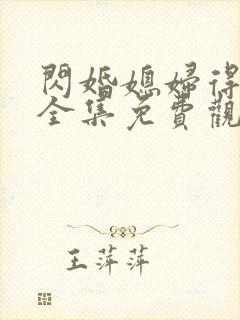 閃婚媳婦得
全集免費觀
王萍萍